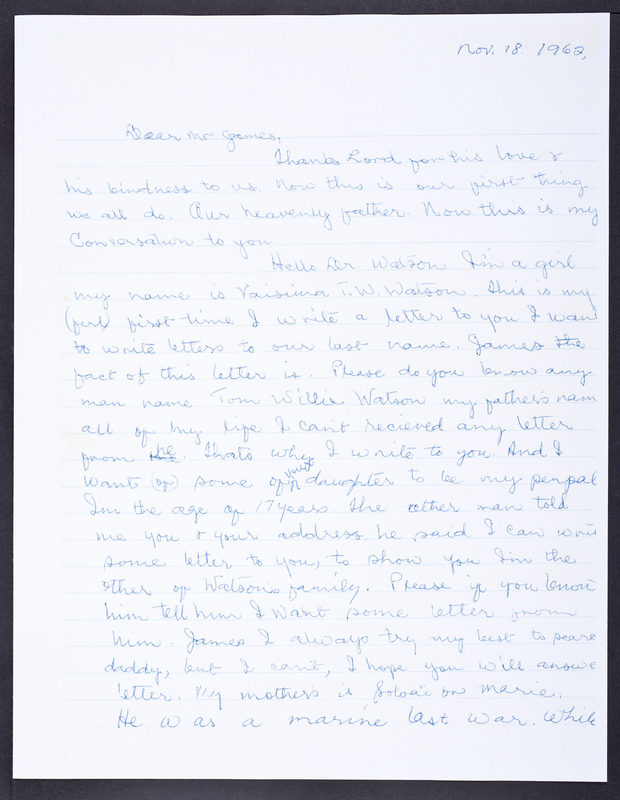 Nov. 18. 1962,
Dear Mr James,
Thanks Lord for his love &
his kindness to us. Now this is our first thing
we all do. Our heavenly father. Now this is my
Conversation to you
Hello Dr. Watson I'm a girl
my name is Vaisima T.W. Watson. This is my
first time I write a letter to you I wan
to write letters to our last name. James the
fact of this letter is. Please do you know any
man name Tom Willie Watson my father's nam
all of my life I can't recieved any letter
from he. Thats why I write to you And I
want (of) some of your daughter to be my penpal
I'm the age of 17 years the other man told
me you & your address, he said I can writ
some letter to you, to show you I'm the
other of Watson's family. Please if you know
him tell him I want some letter from
him. James I always try my best to
daddy, but I can't, I hope you will answe
letter. My mother's is Marie.
He was a marine last war. While